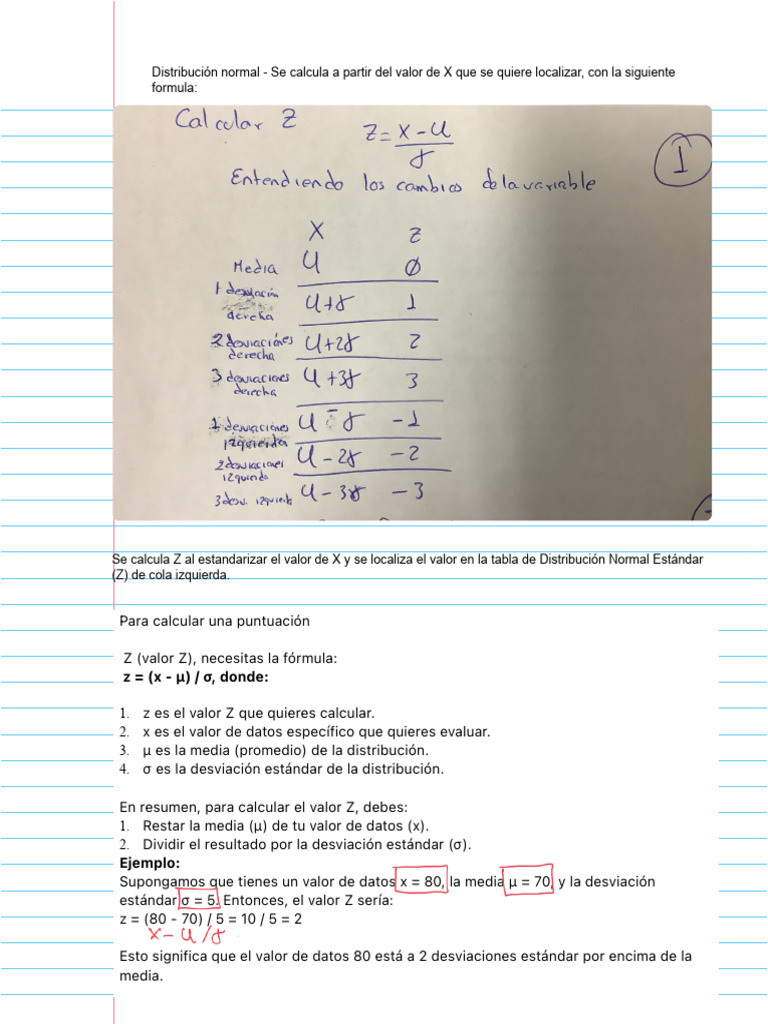 Distribución normal - Se calcula a partir del valor de X que se quiere localizar, con la siguiente
formula:
Calcular Z
Z = X - U
γ
1
Entendiendo los cambios de la variable
X Z
Media U Ø
1 desviación
derecha
U+γ 1
2 desviaciones
derecha
U+2γ 2
3 desviaciones
derecha
U+3γ 3
1 desviaciones
izquierda
U - γ -1
2 desviaciones
izquierda
U - 2γ -2
3 desv. izquierd U - 3γ -3
Se calcula Z al estandarizar el valor de X y se localiza el valor en la tabla de Distribución Normal Estándar
(Z) de cola izquierda.
Para calcular una puntuación
Z (valor Z), necesitas la fórmula:
z = (x - μ) / σ, donde:
1. z es el valor Z que quieres calcular.
2. x es el valor de datos específico que quieres evaluar.
3. μ es la media (promedio) de la distribución.
4. σ es la desviación estándar de la distribución.
En resumen, para calcular el valor Z, debes:
1. Restar la media (μ) de tu valor de datos (x).
2. Dividir el resultado por la desviación estándar (σ).
Ejemplo:
Supongamos que tienes un valor de datos x = 80, la media μ = 70, y la desviación
estándar σ = 5. Entonces, el valor Z sería:
z = (80 - 70) / 5 = 10 / 5 = 2
X - U / γ
Esto significa que el valor de datos 80 está a 2 desviaciones estándar por encima de la
media.